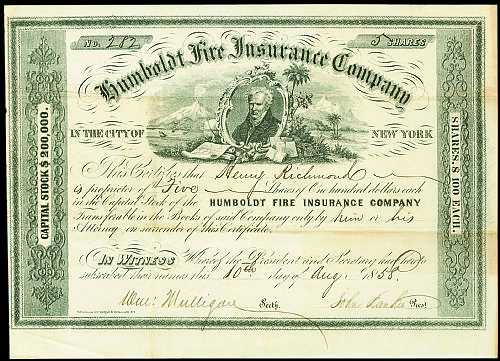 No. 282 5 SHARES
Humboldt Fire Insurance Company
IN THE CITY OF NEW YORK
CAPITAL STOCK $200,000.
SHARES, $100 EACH.
This Certifies that Henry Richmond
is proprietor of Five Shares of One hundred dollars each
in the Capital Stock of the HUMBOLDT FIRE INSURANCE COMPANY
Transferable in the Books of said Company only by him or his
Attorney on surrender of this Certificate.
IN WITNESS Whereof the President and Secretary have
subscribed their names this 10th day of Aug. 1858.
Wm. Mulligan Secty. John Prest.